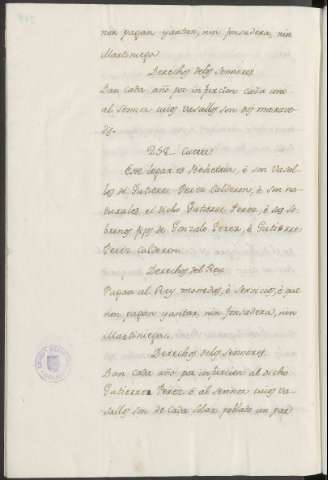 nin pagan yantar, nin fonsadera, nin
Martiniega.
Derechos delos Sennores
Dan cada año por infurcion cada uno
al Sennor cuios vasallos son dos marave-
dis.
Este logar es Behetria, è son Vasal-
los de Gutierre Perez Calderon, è son na-
turales el dicho Gutierre Perez, è sus so-
brinos fijos de Gonzalo Perez, è Gutierre
Perez Calderon.
Derechos del Rey
Pagan al Rey monedas, è servicios, è que
non pagan yantar, nin fonsadera, nin
Martiniega.
Derechos delos Sennores
Dan cada año por infurcion al dicho
Gutierre Perez ò al Sennor cuios va-
sallos son de cada Solar poblado un par